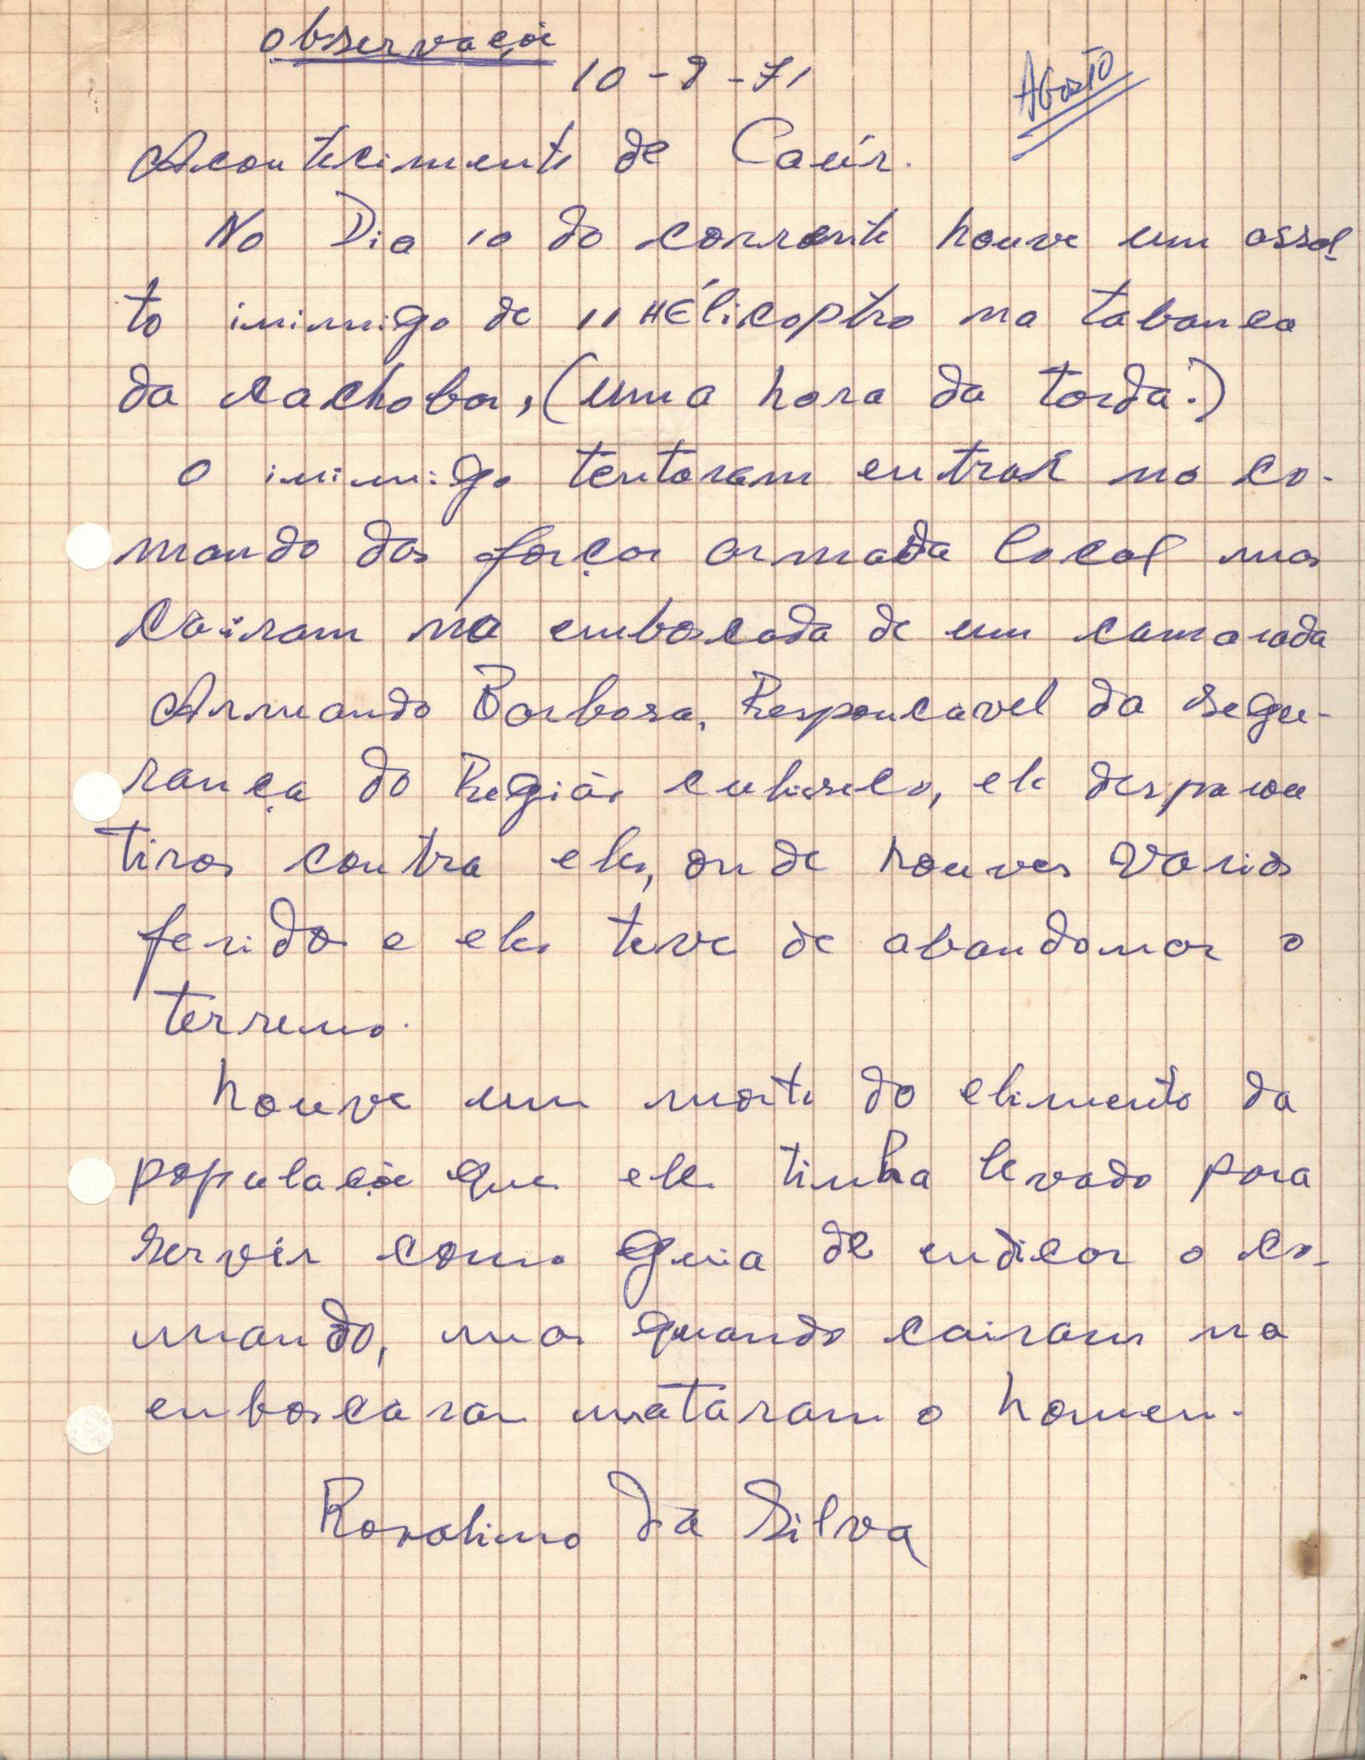 observação
10-8-71
Agosto
Acontecimento de Caeir.
No Dia 10 do corrente houve um assal
to inimigo de 11 HÉlicoptro na tabanca
da cachoba, (uma hora da tarda.)
O inimigo tentaram entrar no co-
mando das força armada local mas
cairam na emboscada de um camarada
Armando Barbosa, Responcavel da segu-
rança do Região cubiseco, ele desparou
tiros contra eles, onde houves varios
ferido e eles teve de abandonar o
terreno.
houve um morte do elimento da
população que eles tinha levado para
servir como guia de endicar o co-
mando, mas quando cairam na
enboscaran mataram o homen.
da Silva